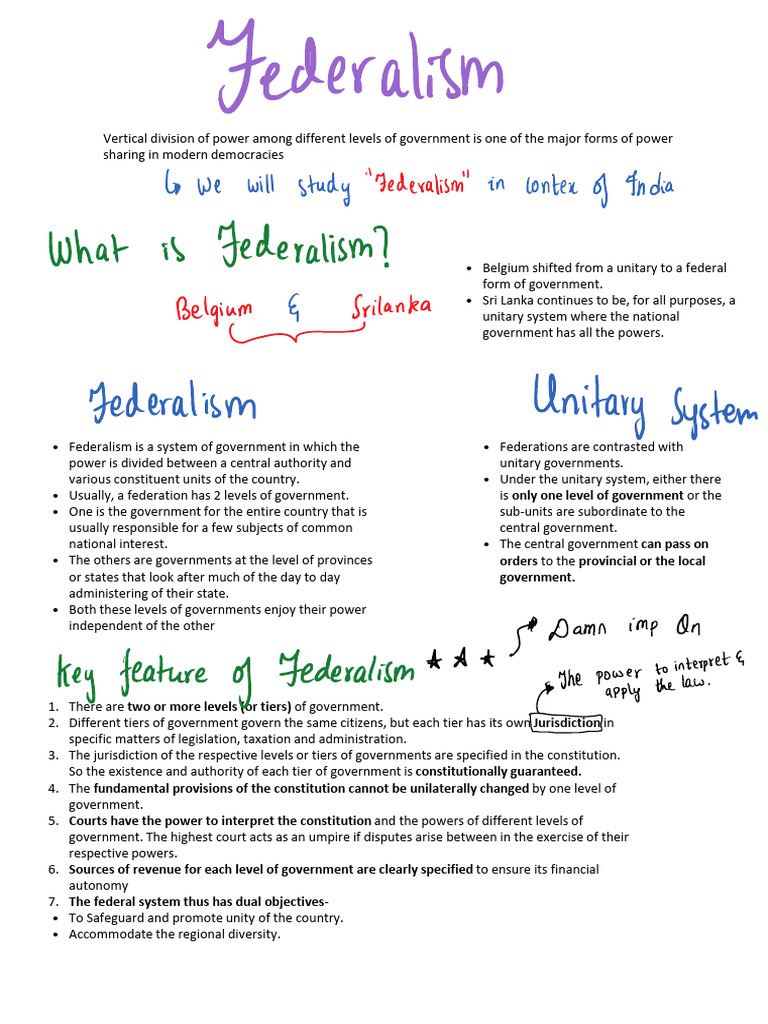 Federalism
Vertical division of power among different levels of government is one of the major forms of power
sharing in modern democracies
↳ we will study "Federalism" in contex of India
What is Federalism?
Belgium & Srilanka
• Belgium shifted from a unitary to a federal
form of government.
• Sri Lanka continues to be, for all purposes, a
unitary system where the national
government has all the powers.
Federalism
• Federalism is a system of government in which the
power is divided between a central authority and
various constituent units of the country.
• Usually, a federation has 2 levels of government.
• One is the government for the entire country that is
usually responsible for a few subjects of common
national interest.
• The others are governments at the level of provinces
or states that look after much of the day to day
administering of their state.
• Both these levels of governments enjoy their power
independent of the other
Unitary System
• Federations are contrasted with
unitary governments.
• Under the unitary system, either there
is only one level of government or the
sub-units are subordinate to the
central government.
• The central government can pass on
orders to the provincial or the local
government.
Key feature of Federalism ★ ★ ★
Damn imp Qn
The power to interpret &
apply the law.
1. There are two or more levels (or tiers) of government.
2. Different tiers of government govern the same citizens, but each tier has its own Jurisdiction in
specific matters of legislation, taxation and administration.
3. The jurisdiction of the respective levels or tiers of governments are specified in the constitution.
So the existence and authority of each tier of government is constitutionally guaranteed.
4. The fundamental provisions of the constitution cannot be unilaterally changed by one level of
government.
5. Courts have the power to interpret the constitution and the powers of different levels of
government. The highest court acts as an umpire if disputes arise between in the exercise of their
respective powers.
6. Sources of revenue for each level of government are clearly specified to ensure its financial
autonomy
7. The federal system thus has dual objectives-
• To Safeguard and promote unity of the country.
• Accommodate the regional diversity.